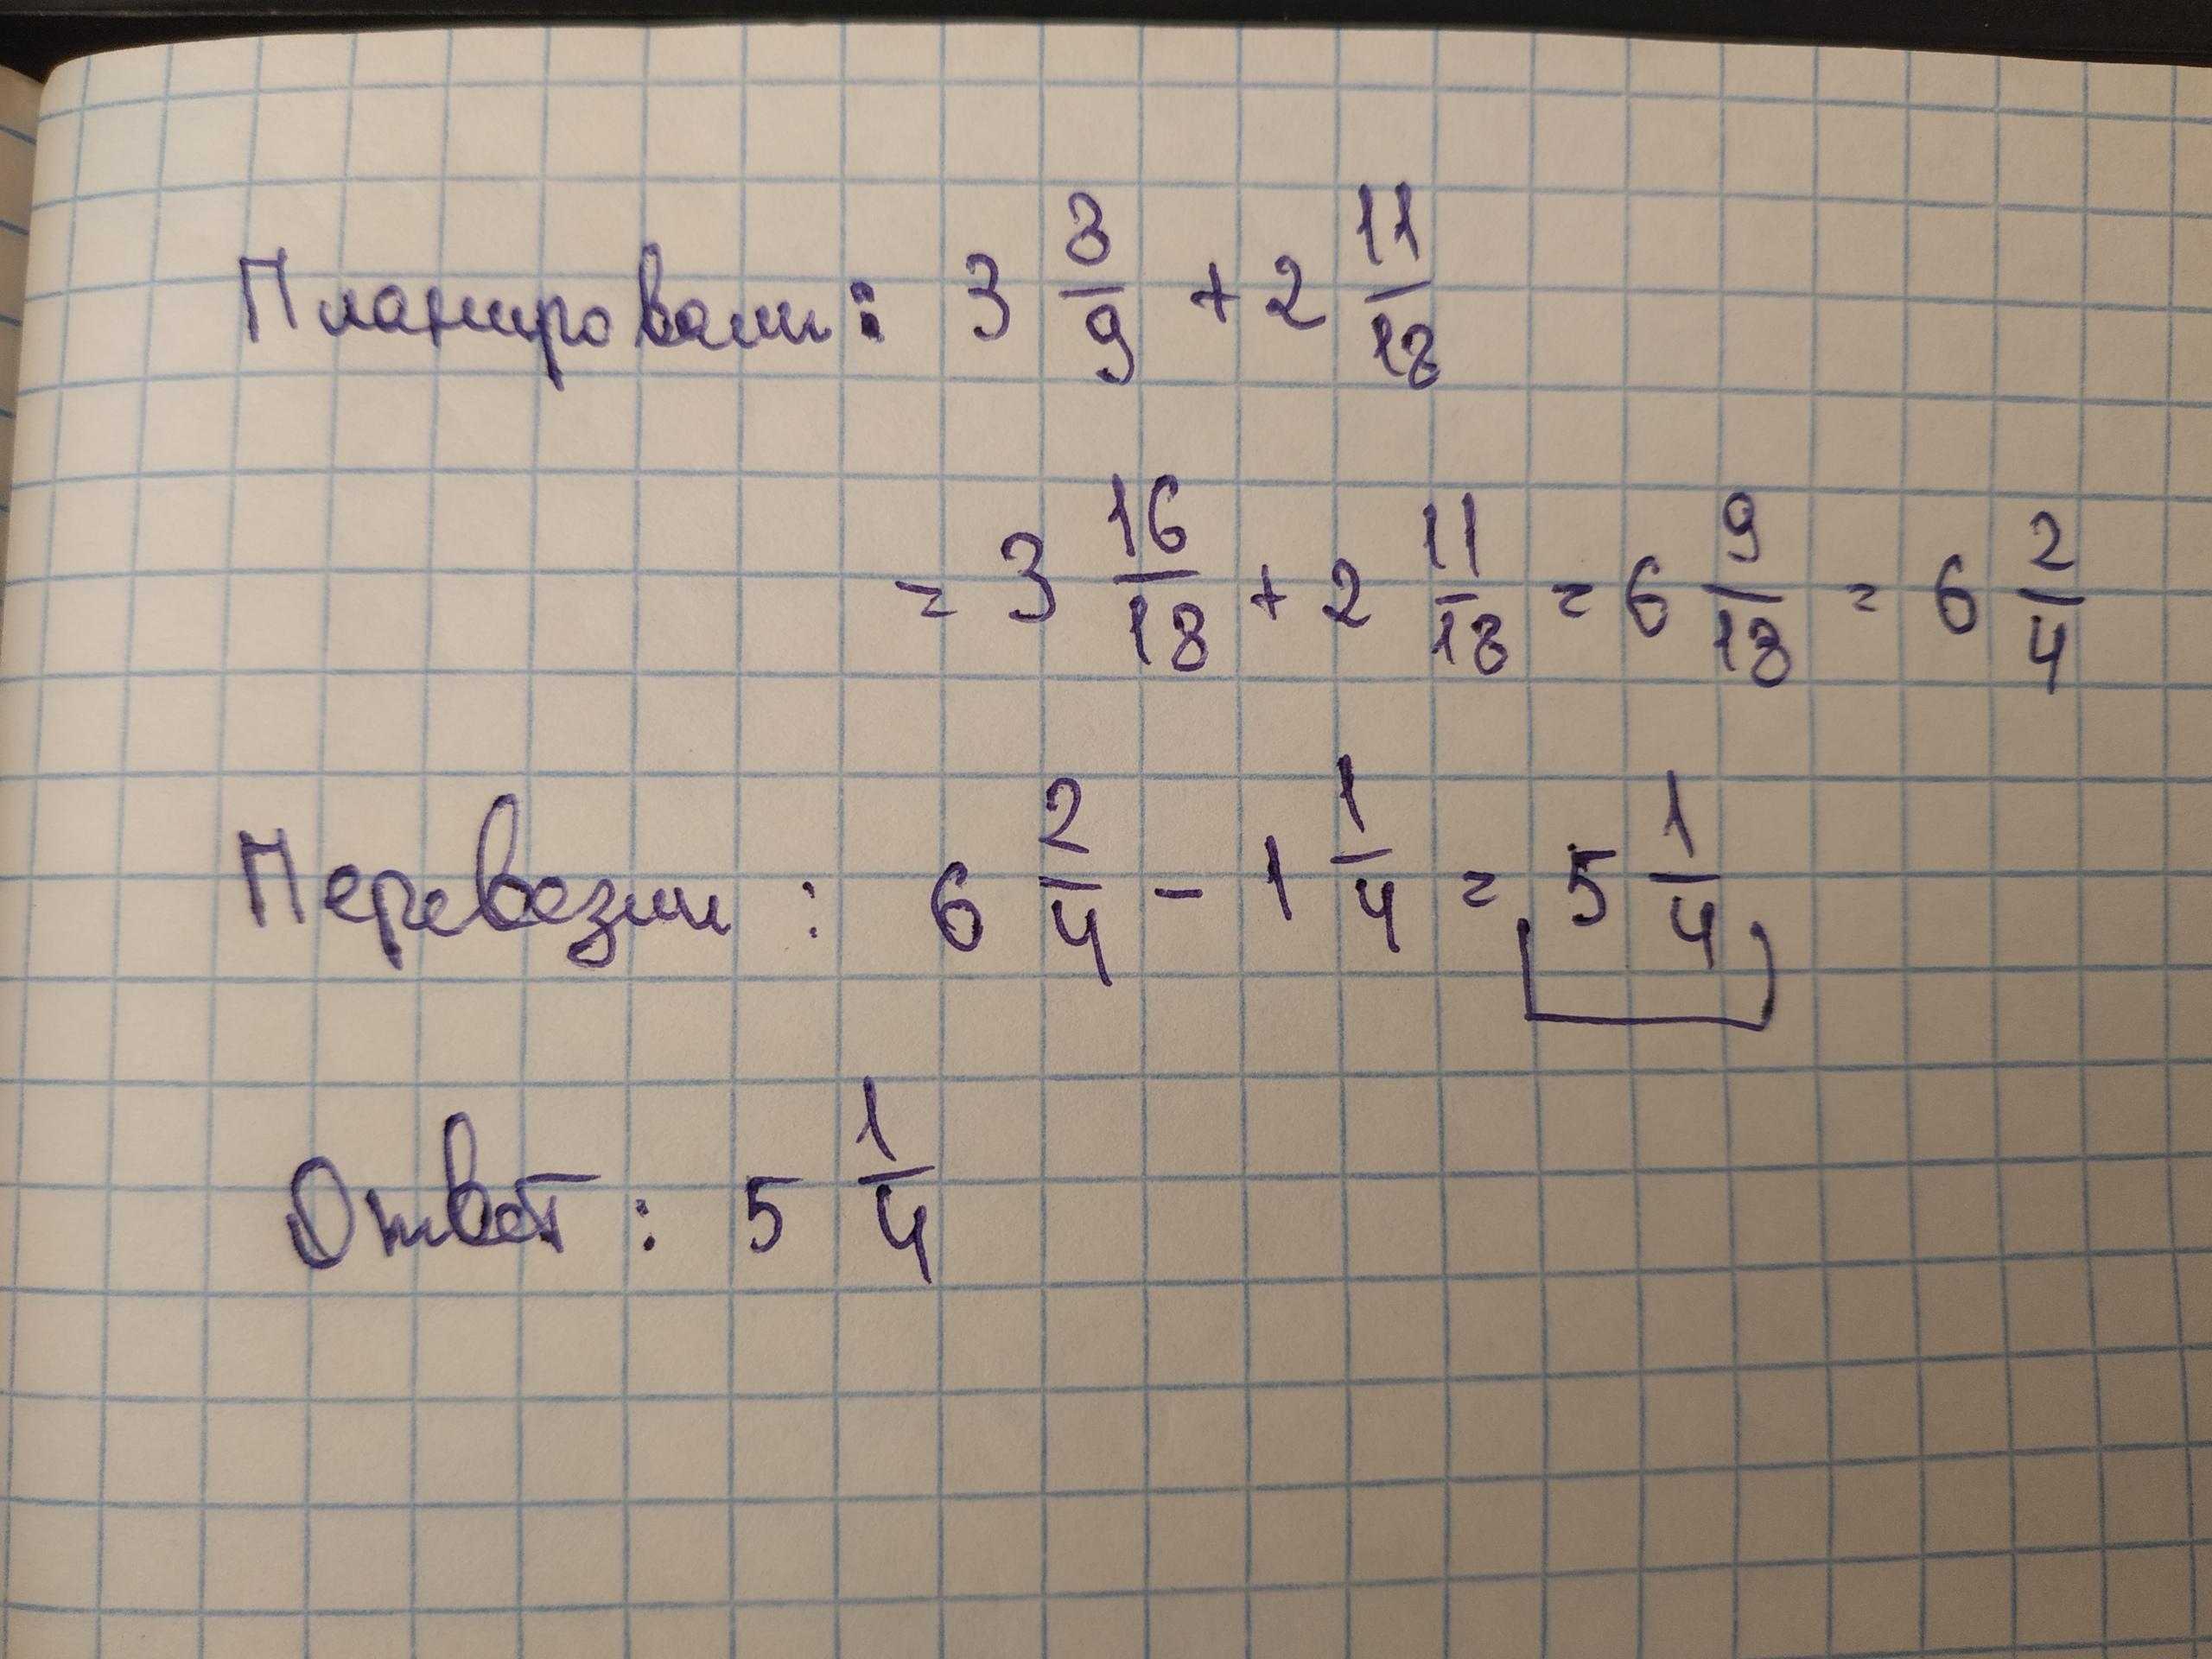 Планировали: 3 8/9 + 2 11/18
= 3 16/18 + 2 11/18 = 6 9/18 = 6 2/4
Перевезли: 6 2/4 - 1 1/4 = 5 1/4
Ответ: 5 1/4